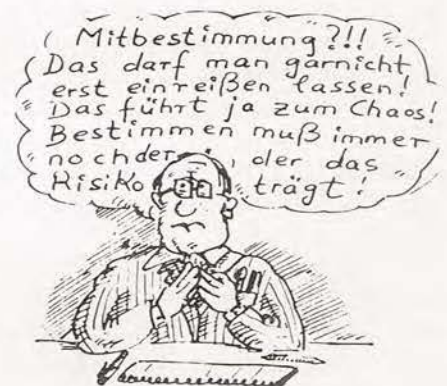 Mitbestimmung?!!
Das darf man garnicht
erst einreißen lassen!
Das führt ja zum Chaos!
Bestimmen muß immer
noch der, der das
Risiko trägt!